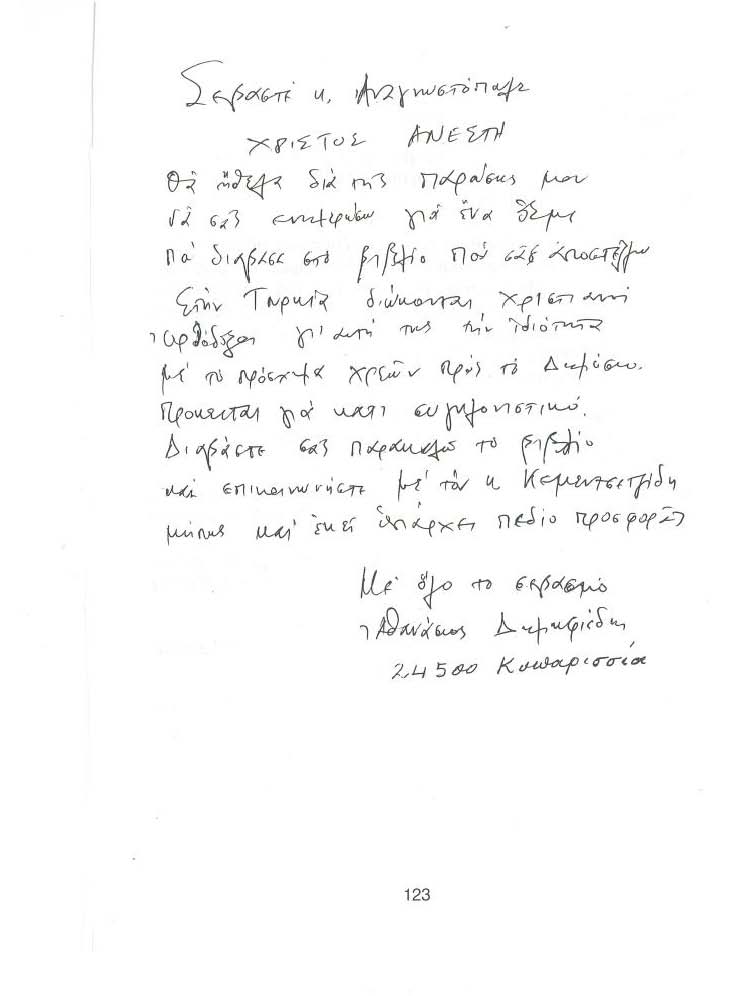 Σεβαστέ κ. Αναγνωστόπουλε
ΧΡΙΣΤΟΣ ΑΝΕΣΤΗ
Θὰ ἤθελα διὰ τῆς παρούσης μου
νὰ σᾶς ενημερώσω γιὰ ἕνα θέμα
ποὺ διάβασα στὸ βιβλίο ποὺ σᾶς ἀποστέλλω
Στὴν Τουρκία διώκονται χριστιανοί
ὀρθόδοξοι γι' αυτή τους τὴν ἰδιότητα
μὲ τὸ πρόσχημα χρεῶν πρὸς τὸ Δημόσιο.
Πρόκειται γιὰ κάτι συγκλονιστικό.
Διαβάστε σᾶς παρακαλῶ τὸ βιβλίο
καὶ επικοινωνήστε μὲ τὸν κ Κεμεντσετζίδη
μήπως καὶ ἐκεῖ ὑπάρχει πεδίο προσφορᾶς
Μὲ ὅλο τὸ σεβασμό
Ἀθανάσιος Δημητριάδης
24500 Κυπαρισσία
123